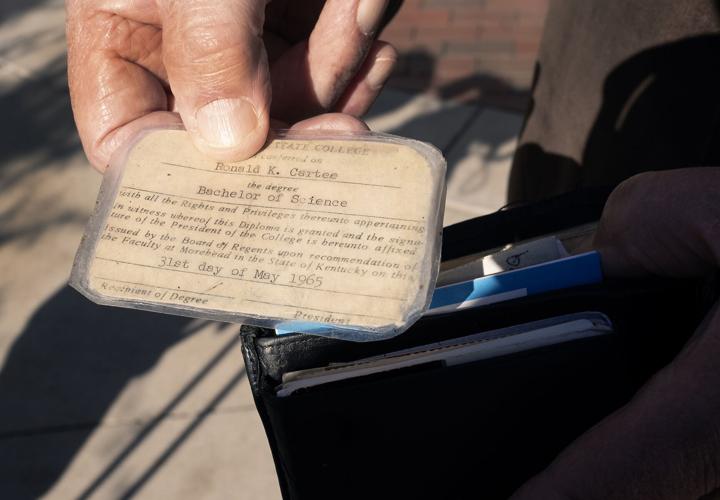 STATE COLLEGE
conferred on
Ronald K. Cartee
the degree
Bachelor of Science
with all the Rights and Privileges thereunto appertaining
in witness whereof this Diploma is granted and the signa-
ture of the President of the College is hereunto affixed
issued by the Board of Regents upon recommendation of
the Faculty at Morehead in the State of Kentucky on this
31st day of May 1965
Recipient of Degree
President